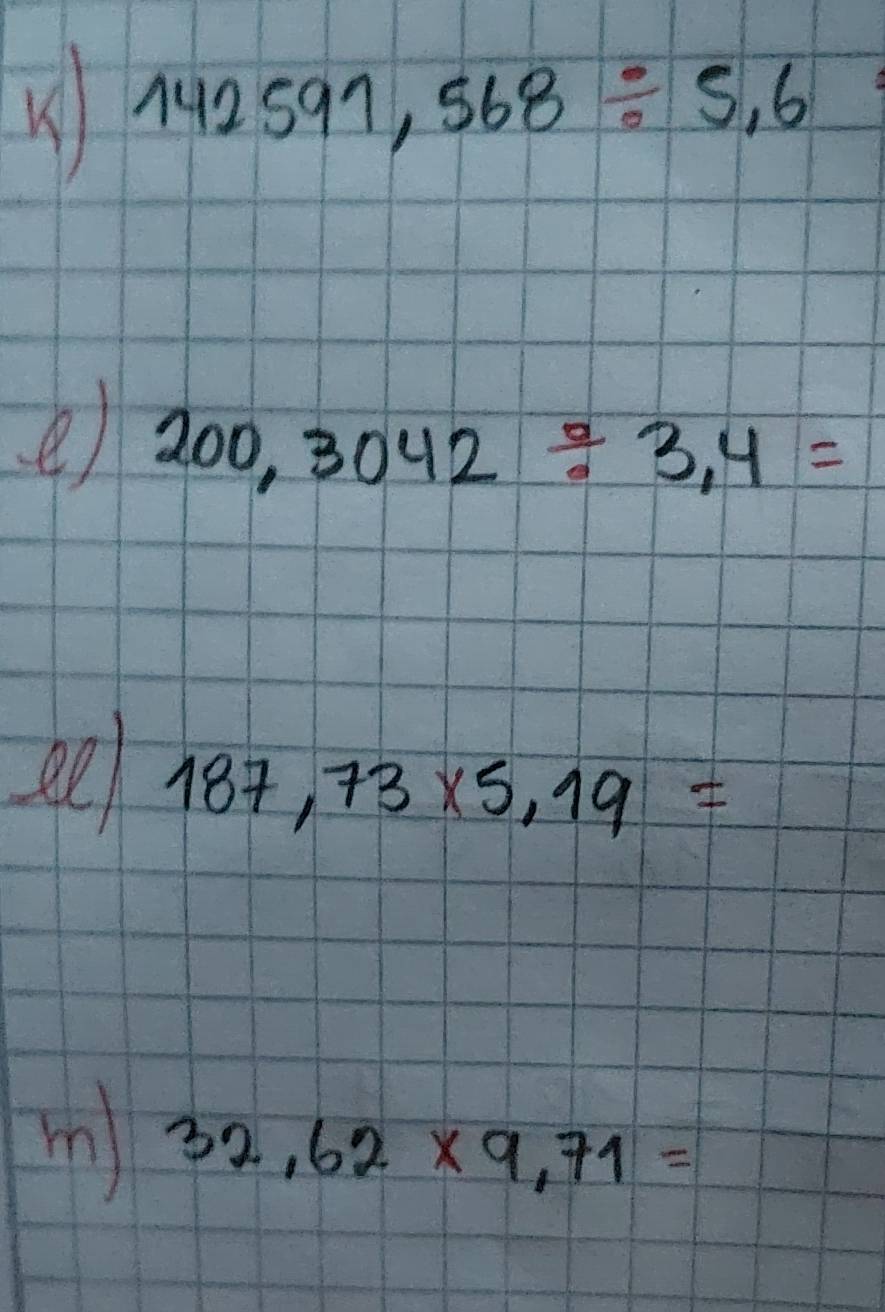 K) 142591,568 ÷ 5,6
l) 200,3042 ÷ 3,4 =
ll) 187,73 x 5,19 =
m) 32,62 x 9,71 =